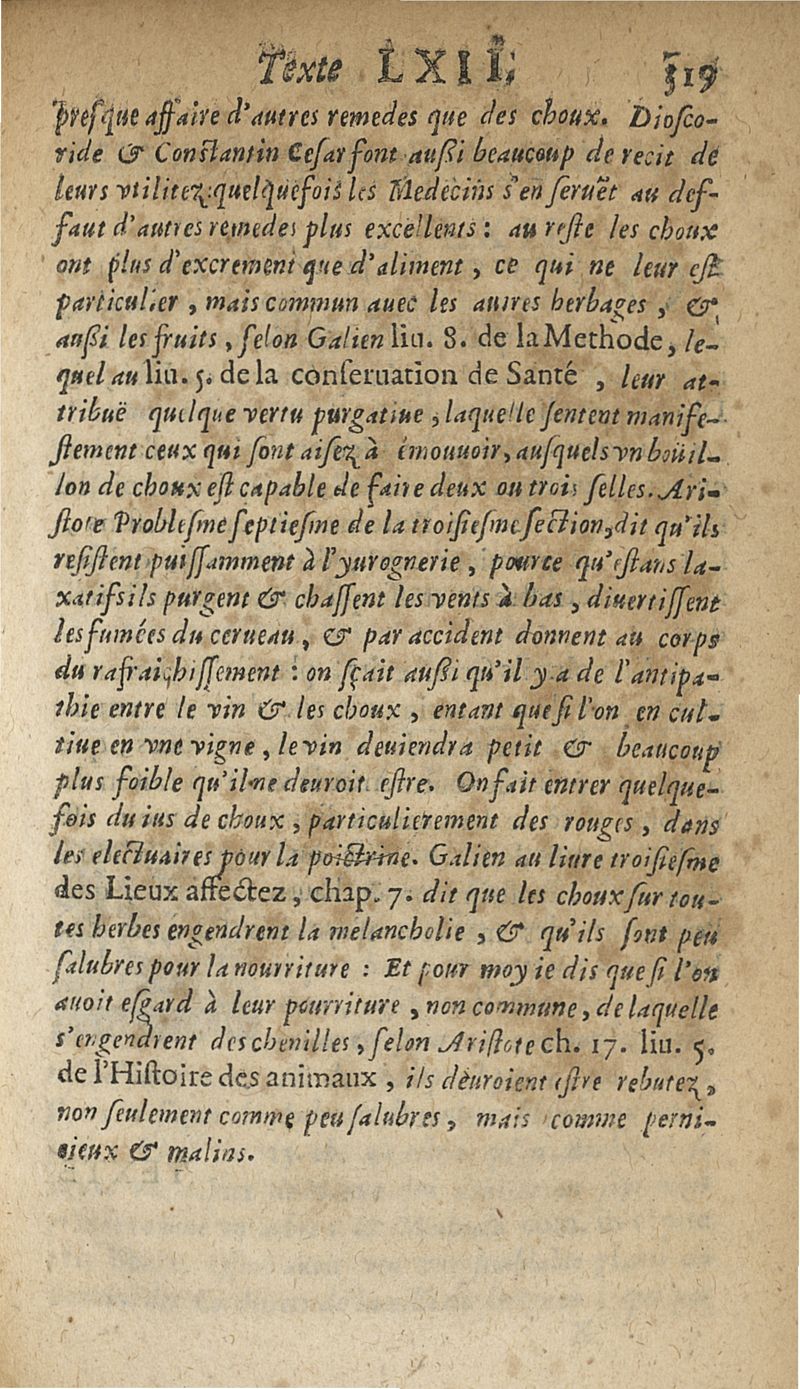 Texte LXII. 319
presque affaire d'autres remedes que des choux. Diosco-
ride & Constantin Cesar font aussi beaucoup de recit de
leurs vtilitez: quelquefois les Medecins s'en seruẽt au def-
faut d'autres remedes plus excellents : au reste les choux
ont plus d'excrement que d'aliment, ce qui ne leur est
particulier, mais commun auec les autres herbages, &
aussi les fruits, selon Galien liu. 8. de la Methode, le-
quel au liu. 5. de la conseruation de Santé, leur at-
tribuë quelque vertu purgatiue, laquelle sentent manife-
stement ceux qui sont aisez à émouuoir, ausquels vn boüil-
lon de choux est capable de faire deux ou trois selles. Ari-
stote Problesme septiesme de la troisiesme section, dit qu'ils
resistent puissamment à l'yurognerie, pource qu'estans la-
xatifs ils purgent & chassent les vents à bas, diuertissent
les fumées du cerueau, & par accident donnent au corps
du rafraichissement : on sçait aussi qu'il y a de l'antipa-
thie entre le vin & les choux, entant que si l'on en cul-
tiue en vne vigne, le vin deuiendra petit & beaucoup
plus foible qu'il ne deuroit estre. On fait entrer quelque-
fois du ius de choux, particulierement des rouges, dans
les electuaires pour la poictrine. Galien au liure troisiesme
des Lieux affectez, chap. 7. dit que les choux sur tou-
tes herbes engendrent la melancholie, & qu'ils sont peu
salubres pour la nourriture : Et pour moy ie dis que si l'on
auoit esgard à leur pourriture, non commune, de laquelle
s'engendrent des chenilles, selon Aristote ch. 17. liu. 5.
de l'Histoire des animaux, ils dèuroient estre rebutez,
non seulement comme peu salubres, mais comme perni-
cieux & malins.